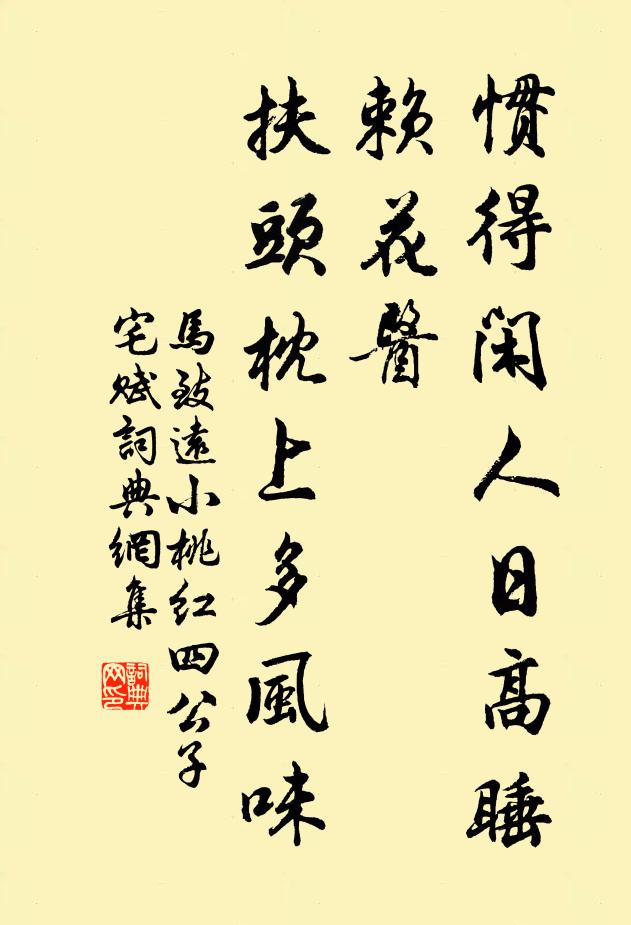 慣得閑人日高睡
賴花醫
扶頭枕上多風味
馬致遠小桃紅四公子
宅賦詞典網集
詞典网印